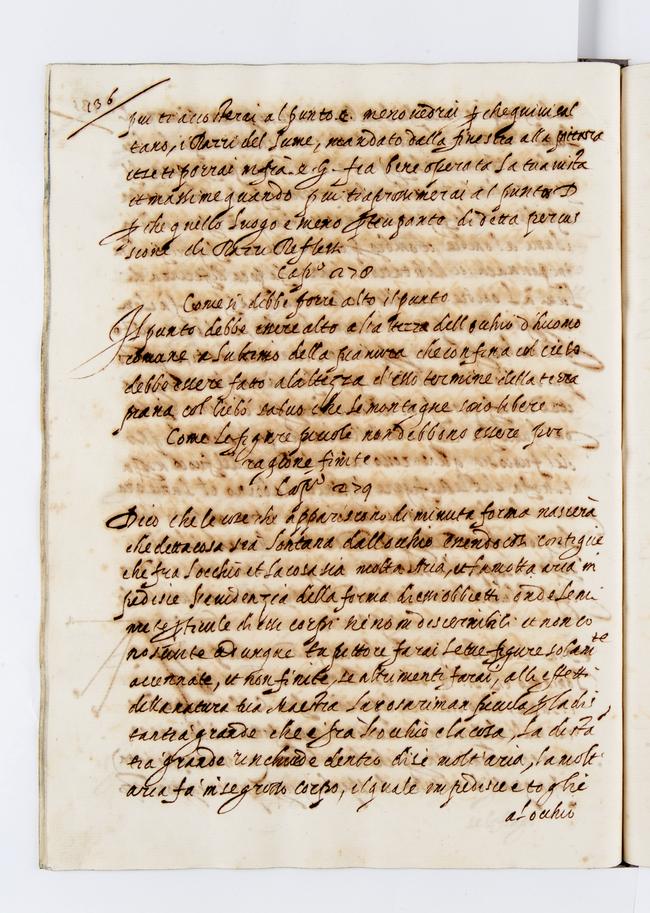 136
piu ti accosterai al punto E. meno vedrai ꝑ che quivi sal
tano, i Razzi del lume, mandato dalla finestra alla pittura
et se ti porrai infrà. e G. fia bene operata la tua vista
et massime quando piu ti aprossimerai al punto D
ꝑ che quello luogo e meno ꝑticipante di detta percus
sione di Razzi Reflessi
Capº. 278
Come si debbe porre alto il punto
Il punto debbe essere alto all'altezza dell'occhio d'huomo
comune e l'ultimo della pianura che confina col cielo
debbe essere fato a la'ltezza d'esso termine della terra
piana col cielo salvo che le montagne sono libere
Come le figure piccole non debbono essere per
ragione finite
Capº 279
Dico che le cose che appariscono di minuta forma nascerà
che detta cosa sià lontana dall'occhio essendo cosi contiene
che fra l'occhio et la cosa sia molta Aria, et la molta aria im
pedisce l'evidenzia della forma di essi obbietti onde le mi
nute ꝑticule di essi corpi sieno indiscernibili et non co
nosciute adunque tu pittore farai le tue figure solamte
accennate, et non finite, se altrimenti farai, alli effetti
della natura tua Maestra la cosa riman piccula ꝑ la dis
tantia grande che e fra l'occhio e la cosa, la dista
tia grande rinchiude dentro di se molt'aria, la molt
aria fa in se grosso corpo, il quale impedisce e toglie
al occhio